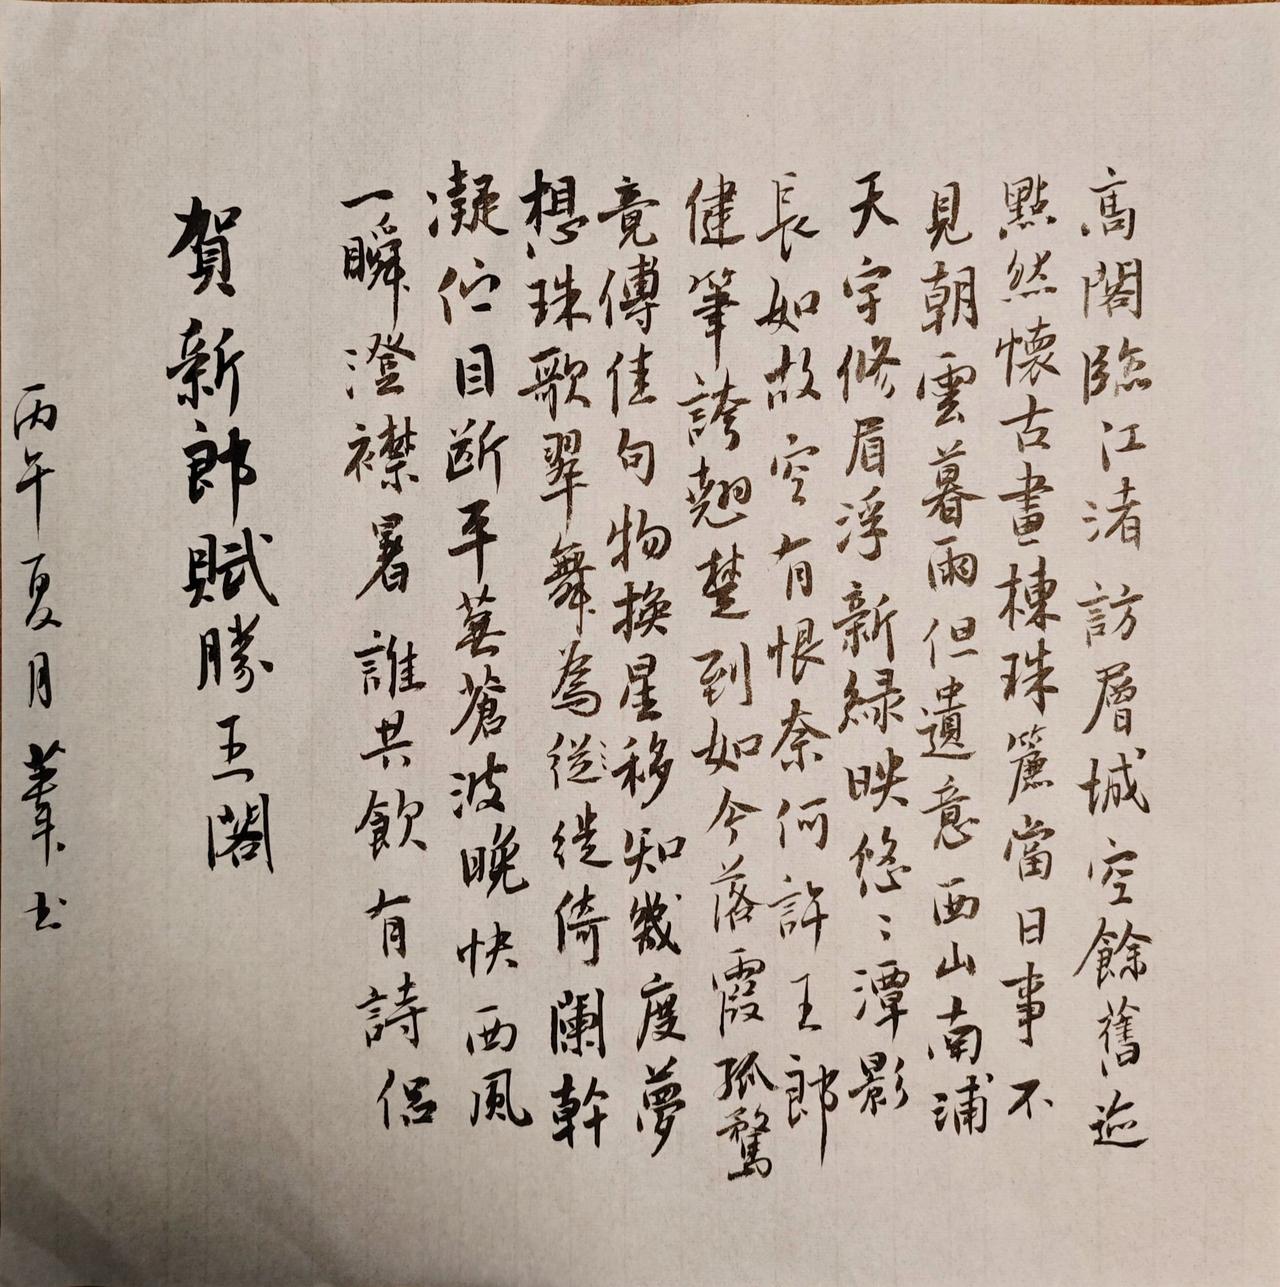 高閣臨江渚訪層城空餘舊迹
黯然懷古畫棟珠簾當日事不
見朝雲暮雨但遺意西山南浦
天宇修眉浮新綠映悠〻潭影
長如故空有恨奈何許王郎
健筆誇翹楚到如今落霞孤鶩
竟傳佳句物換星移知幾度夢
想珠歌翠舞為從徙倚闌幹
凝佇目斷平蕪蒼波晚快西風
一瞬澄襟暑誰共飲有詩侶
賀新郎賦滕王閣
丙午夏月書